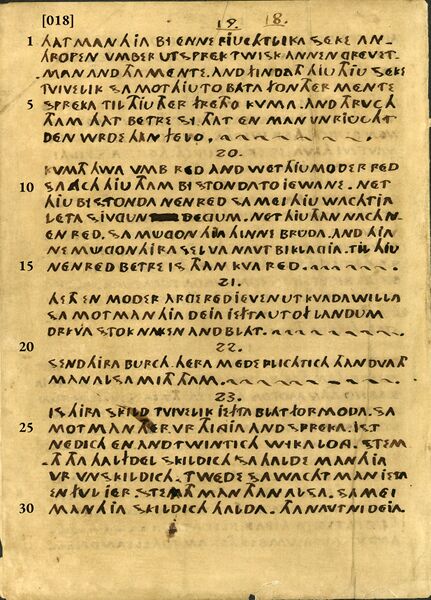 [018]
19. 18.
1 HAT MAN HJA BJ ENNE RJUCHTLIKA SEKE AN-
HROPEN UMBER UT SPREK TWISK ANNEN GREVET-
MAN AND THA MENTE. AND FINDATH HJU THJU SEKE
TVIVELIK SA MOT HJU TO BATA FON THER MENTE
5 SPREKA TIL THJU THER FRETHO KVMA. AND THRVCH
THAM THAT BETRE SI THAT EN MAN UNRIUCHT
DEN WRDE THAN FELO.
20.
KVMTH HWA UMB RED AND WET THJU MODER RED
10 SA ACH HJU THAM BISTONDA TO JEVANE. NET
HJU BISTONDA NEN RED SA MEI HJU WACHTJA
LETA SJVGUN DEGUM. NET HJU THAN NACH N-
EN RED. SA MUGON HJA HINNE BRUDA. AND HJA
NE MUGON HJRA SELVA NAVT BIKLAGJA. TIL THJU
15 NEN RED BETRE IS THAN KVA RED.
21.
HETH EN MODER ARGE RED JEVEN UT KVADA WILLA
SA MOT MAN HJA DEJA JEFTHA UT OF LANDUM
DRIVA STOKNAKEN AND BLAT.
20 22.
SEND HJRA BURCH. HERA MEDEPLICHTICH THAN DVATH
MAN ALSA MITH THAM.
23.
IS HJRA SKILD TVIVELIK JEFTHA BLAT FORMODA. SA
25 MOT MAN THER VR THINGJA AND SPREKA. IST
NEDICH EN AND TWINTICH WYKA LONG. STEM-
TH THA HALFDEL SKILDICH SA HALDE MAN HJA
VR UNSKILDICH. TWEDE SA WACHT MAN JEFTA
EN FUL JER. STEMTH MAN THAN ALSA. SA MEI
30 MAN HJA SKILDICH HALDA. THA NAVT NI DEJA.